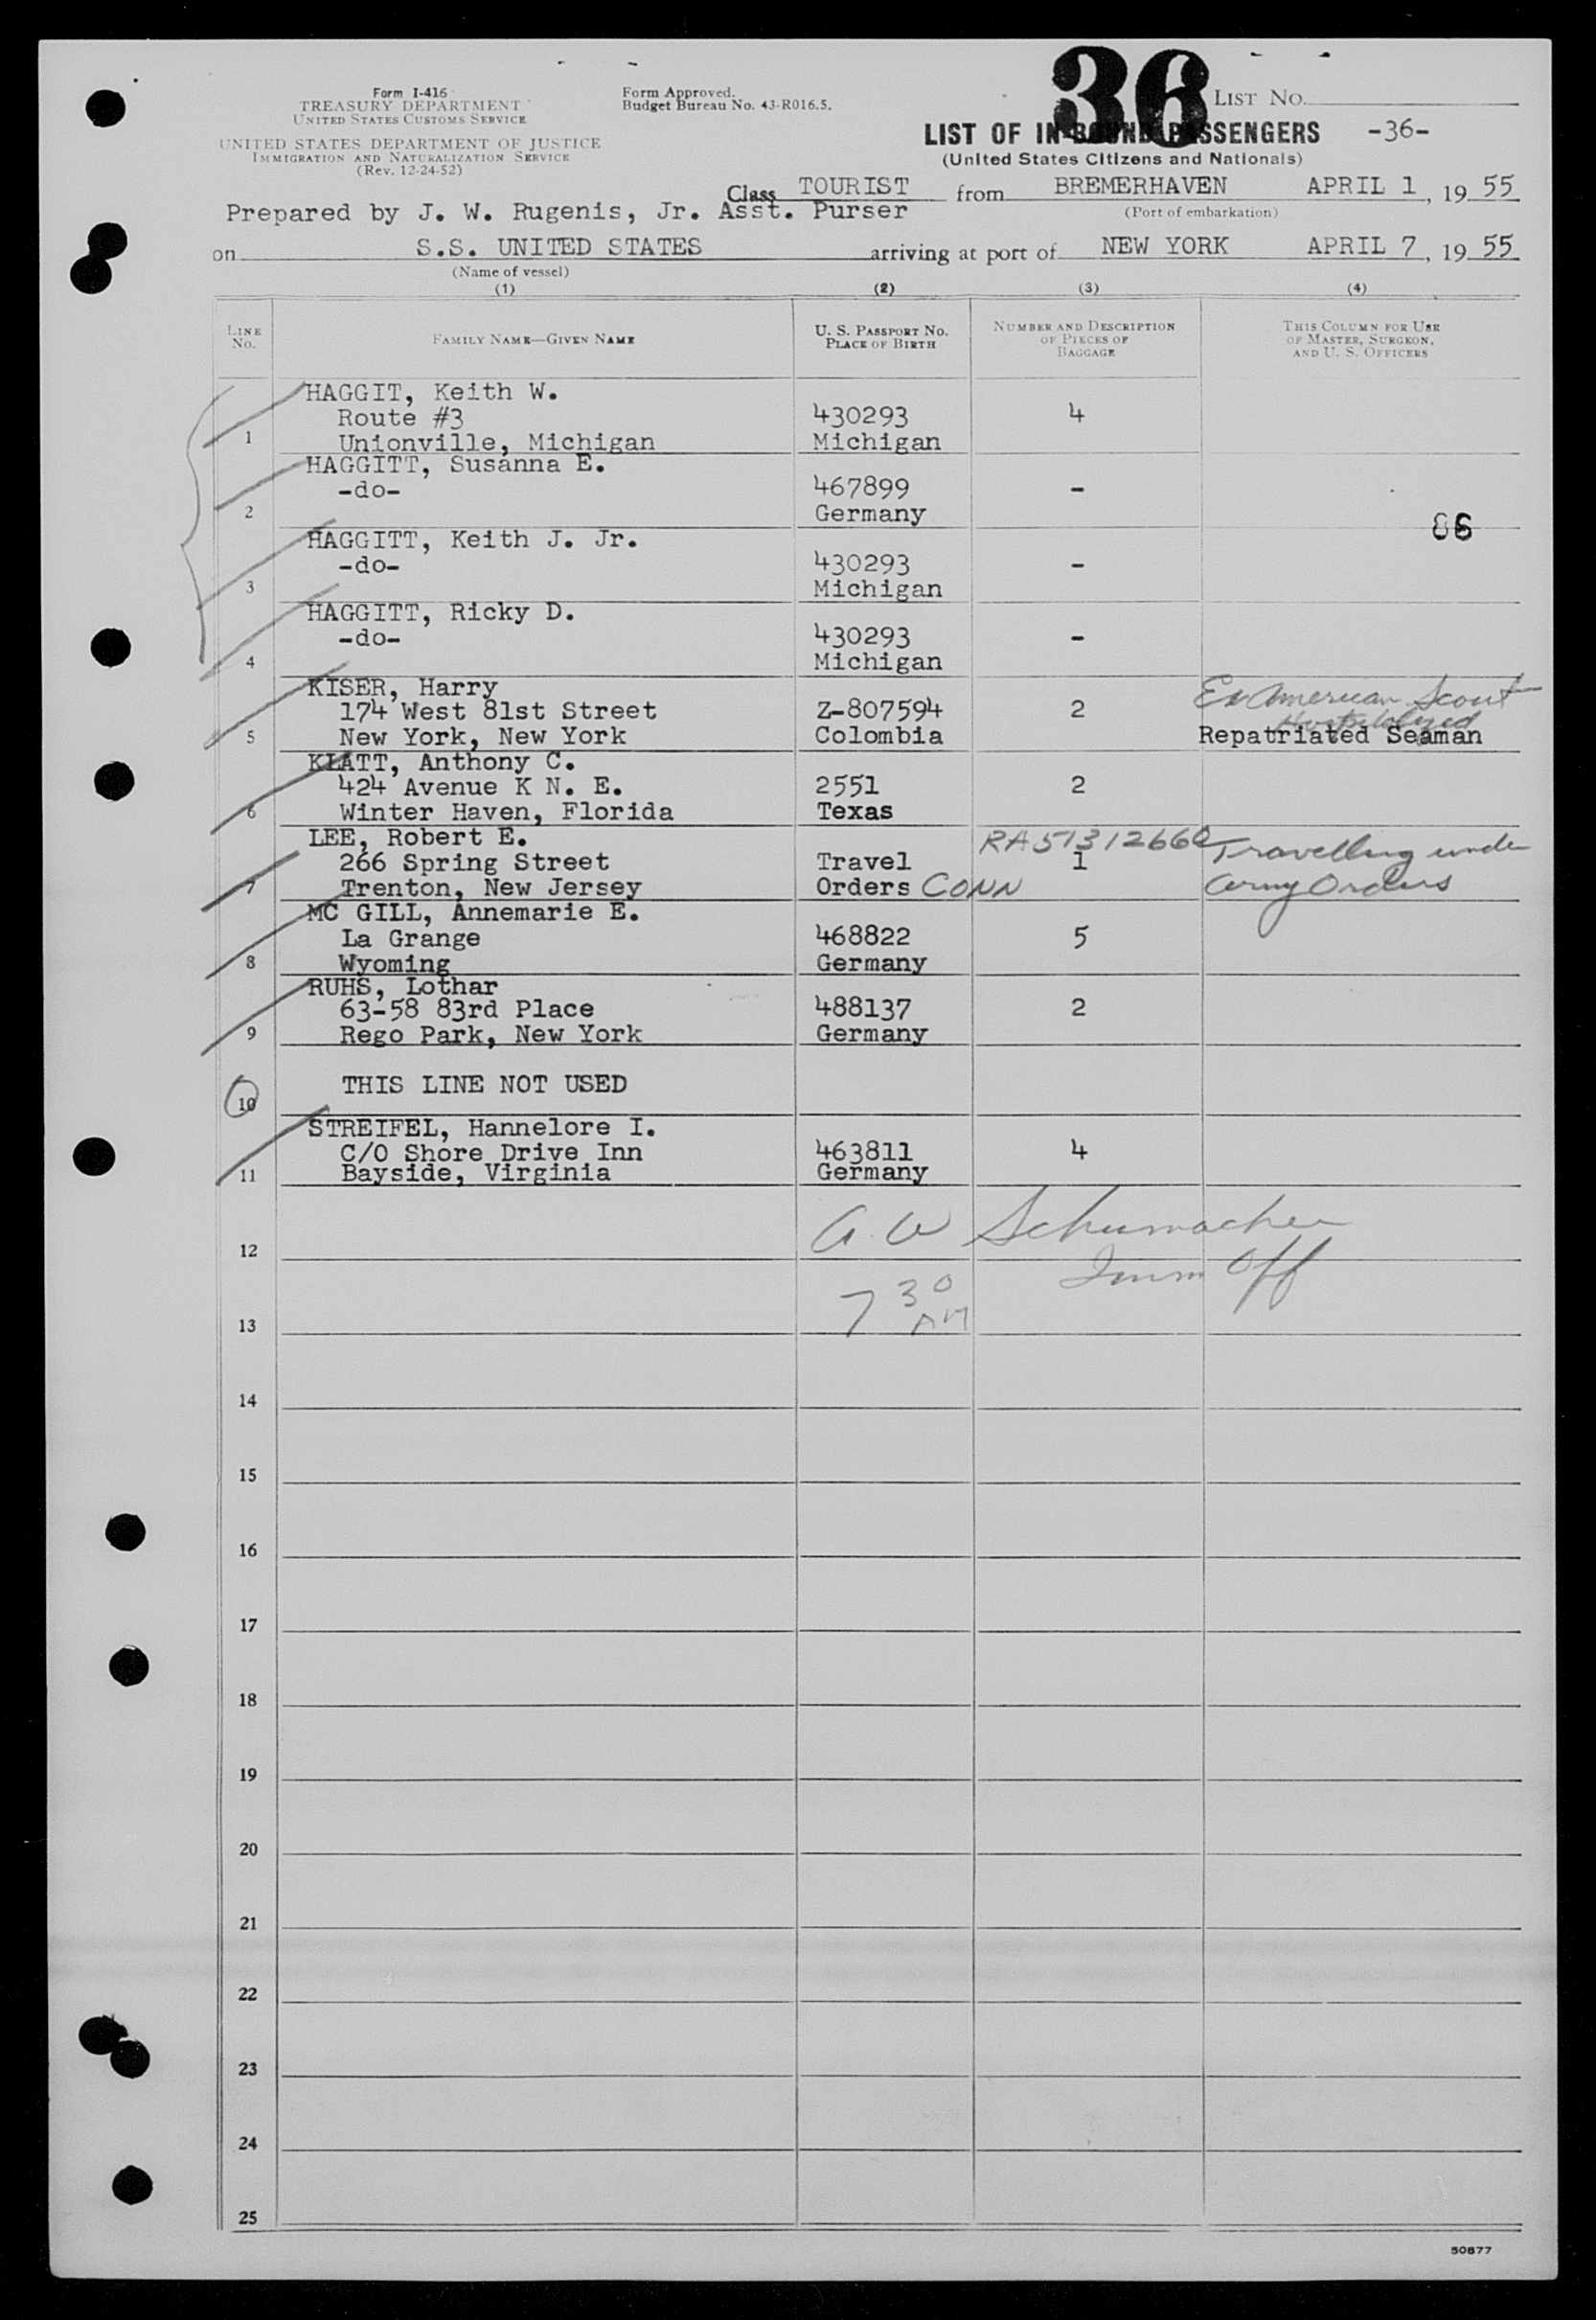 36
Form I-416
TREASURY DEPARTMENT
UNITED STATES CUSTOMS SERVICE
UNITED STATES DEPARTMENT OF JUSTICE
IMMIGRATION AND NATURALIZATION SERVICE
(Rev. 12-24-52)
Form Approved.
Budget Bureau No. 43-R016.5.
LIST NO.
LIST OF IN-BOUND PASSENGERS -36-
(United States Citizens and Nationals)
Class TOURIST from BREMERHAVEN APRIL 1, 1955
(Port of embarkation)
Prepared by J. W. Rugenis, Jr. Asst. Purser
on S.S. UNITED STATES arriving at port of NEW YORK APRIL 7, 1955
(Name of vessel)
(1) (2) (3) (4)
LINE NO.
FAMILY NAME—GIVEN NAME
U. S. PASSPORT NO.
PLACE OF BIRTH
NUMBER AND DESCRIPTION
OF PIECES OF
BAGGAGE
THIS COLUMN FOR USE
OF MASTER, SURGEON,
AND U. S. OFFICERS
HAGGIT, Keith W.
Route #3 430293 4
1 Unionville, Michigan Michigan
HAGGITT, Susanna E.
-do- 467899 -
2 Germany
86
HAGGITT, Keith J. Jr.
-do- 430293 -
3 Michigan
HAGGITT, Ricky D.
-do- 430293 -
4 Michigan
KISER, Harry Ex American Scout
174 West 81st Street Z-807594 2 Hospitalized
5 New York, New York Colombia Repatriated Seaman
KLATT, Anthony C.
424 Avenue K N. E. 2551 2
6 Winter Haven, Florida Texas
LEE, Robert E. RA51312660 Travelling under
266 Spring Street Travel 1
7 Trenton, New Jersey Orders CONN Army Orders
MC GILL, Annemarie E.
La Grange 468822 5
8 Wyoming Germany
RUHS, Lothar
63-58 83rd Place 488137 2
9 Rego Park, New York Germany
THIS LINE NOT USED
10
STREIFEL, Hannelore I.
C/O Shore Drive Inn 463811 4
11 Bayside, Virginia Germany
A. W Schumacher
12 Imm Off
7 30 AM
13
14
15
16
17
18
19
20
21
22
23
24
25
50877